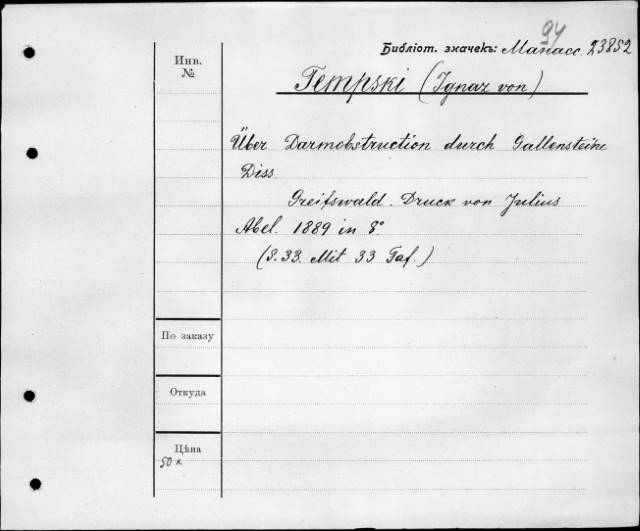 94
Библіот. значекъ: Манасс. 23852
Инв.
№
Tempski (Ignaz von)
Über Darmobstruction durch Gallensteine
Diss.
Greifswald. Druck von Julius
Abel. 1889 in 8°
(S. 33. Mit 33 Taf.)
По заказу
Откуда
Цѣна
50 к.